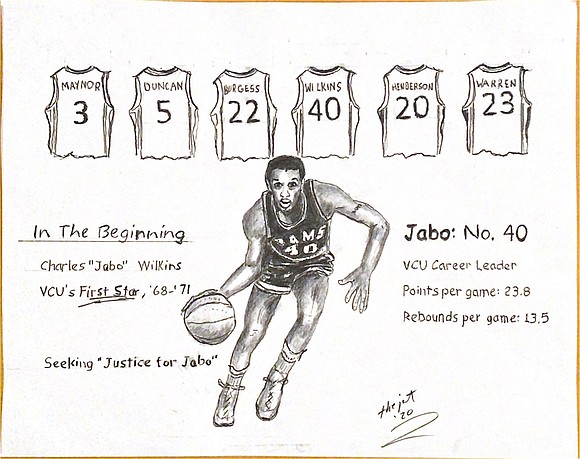 MAYNOR DUNCAN BURGESS WILKINS HENDERSON WARREN
3 5 22 40 20 23
In The Beginning
Charles "Jabo" Wilkins
VCU's First Star, '68-'71
Seeking "Justice for Jabo"
RAMS
40
Jabo: No. 40
VCU Career Leader
Points per game: 23.8
Rebounds per game: 13.5
the jet
'20